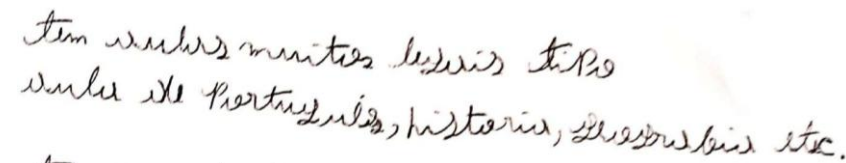 tem aulas muitos legais tipo
aula de Português, historia, geografia etc.